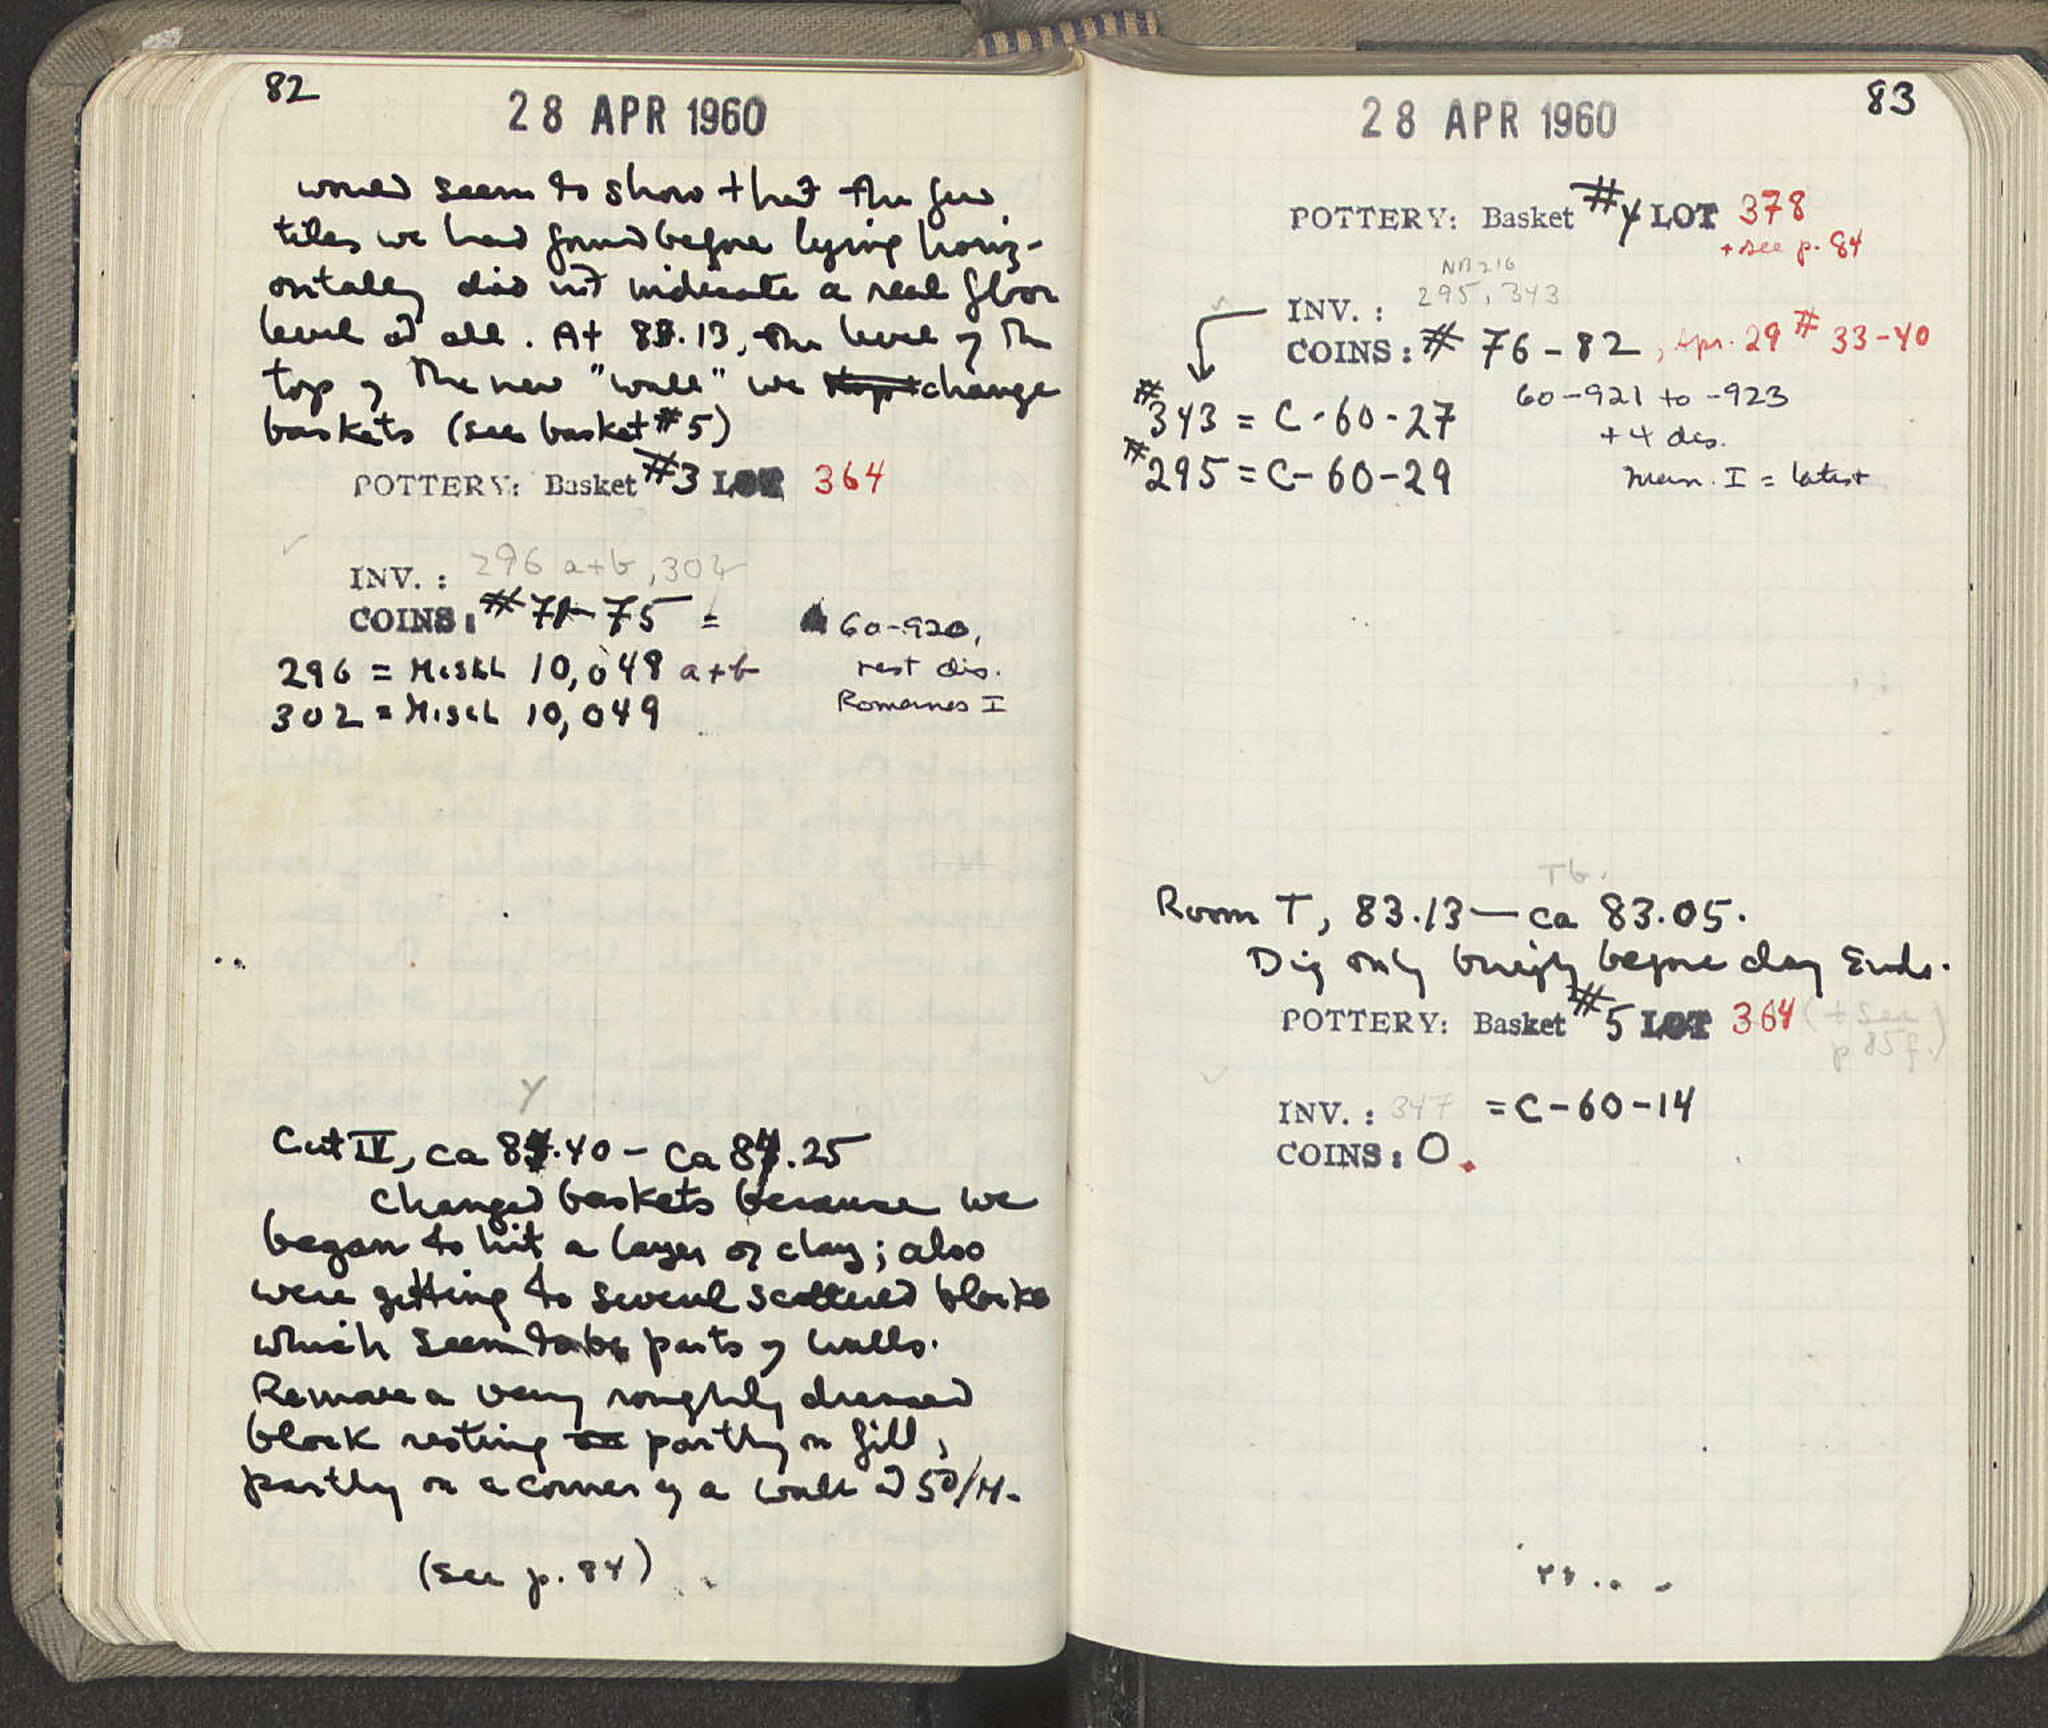 82
28 APR 1960
would seem to show that the few
tiles we had found before lying horiz-
ontally did not indicate a real floor
level at all. At 83.13, the level of the
top of the new "wall" we stop change
baskets (see basket #5)
POTTERY: Basket #3 LOT 364
INV.: 296 a+b, 302
COINS: #71-75 = 60-920,
rest dis.
Romanus I
296 = MISCL 10,048 a+b
302 = MISCL 10,049
Y
Cut IV, ca 84.40 - ca 84.25
Changed baskets because we
began to hit a layer of clay; also
were getting to several scattered blocks
which seem to be parts of walls.
Remove a very roughly dressed
block resting on partly on fill,
partly on a corner of a wall at 50/M.
(see p. 84)
83
28 APR 1960
POTTERY: Basket #4 LOT 378
+ see p. 84
NB216
INV.: 295, 343
COINS: # 76-82, Apr. 29 # 33-40
60-921 to -923
+4 dis.
Man. I = latest
#343 = C-60-27
#295 = C-60-29
Tb.
Room T, 83.13 — ca 83.05.
Dig only briefly before day ends.
POTTERY: Basket #5 LOT 364 (+ see
p 85f.)
INV.: 347 = C-60-14
COINS: 0.